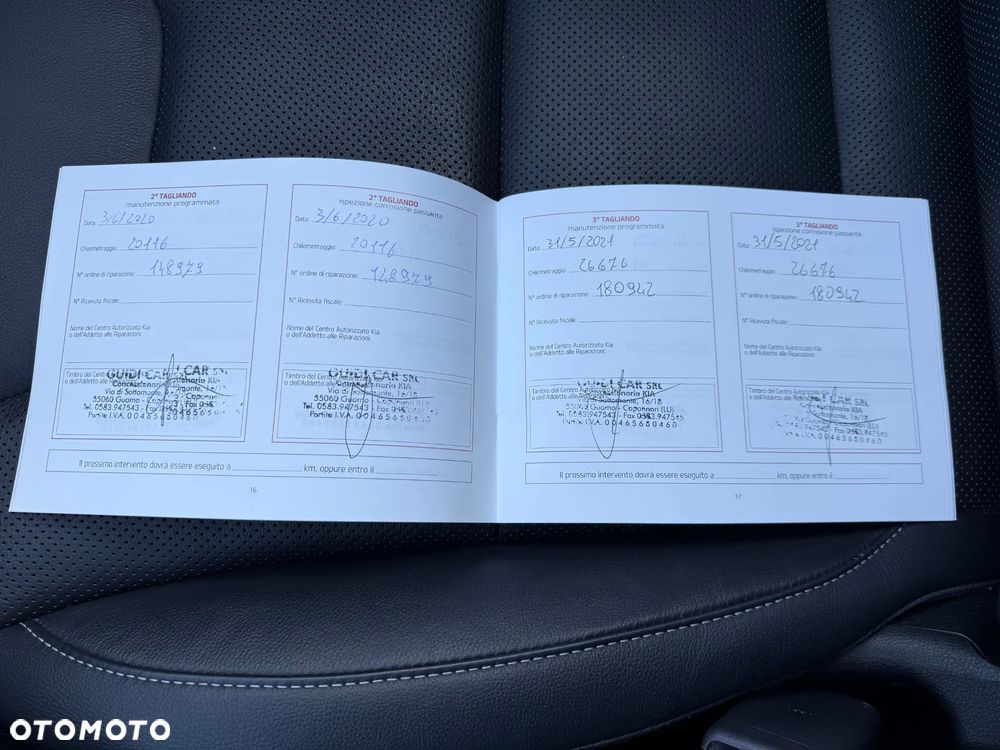 2° TAGLIANDO
manutenzione programmata
Data: 3/6/2020
Chilometraggio: 20116
N° ordine di riparazione: 148979
N° Ricevuta fiscale:
Nome del Centro Autorizzato Kia
o dell'Addetto alle Riparazioni:
Timbro del Centro
o dell'Addetto alle
GUIDI CAR
Concessionaria KIA
Via di Sottomonte, 16/18
55060 Guamo - Capannori
Tel. 0583.947543 - Fax 058
Partita I.V.A. 00465680
2° TAGLIANDO
ispezione corrosione passante
Data: 3/6/2020
Chilometraggio: 20116
N° ordine di riparazione: 148979
N° Ricevuta fiscale:
Nome del Centro Autorizzato Kia
o dell'Addetto alle Riparazioni:
Timbro del Centro
o dell'Addetto alle
GUIDI CAR SRL
Concessionaria KIA
Via di Sottomonte, 16/18
55060 Guamo - Capannori (LU)
Tel. 0583.947543 - Fax 058
Partita I.V.A. 00465680
Il prossimo intervento dovrà essere eseguito a km, oppure entro il
16
3° TAGLIANDO
manutenzione programmata
Data: 31/5/2021
Chilometraggio: 26676
N° ordine di riparazione: 180942
N° Ricevuta fiscale:
Nome del Centro Autorizzato Kia
o dell'Addetto alle Riparazioni:
Timbro del Centro Autorizzato
o dell'Addetto alle
GUIDI CAR SRL
Concessionaria KIA
Sottomonte, 16/18
55060 Guamo - Capannori (LU)
Tel. 0583.947543 - Fax 0583.947565
Partita I.V.A. 00465680460
3° TAGLIANDO
ispezione corrosione passante
Data: 31/5/2021
Chilometraggio: 26676
N° ordine di riparazione: 180942
N° Ricevuta fiscale:
Nome del Centro Autorizzato Kia
o dell'Addetto alle Riparazioni:
Timbro del Centro Autorizzato
o dell'Addetto alle
CAR SRL
KIA
16/18
Capannori (LU)
947543 - Fax 0583.947565
I.V.A. 00465680460
Il prossimo intervento dovrà essere eseguito a km, oppure entro il
17
OTOMOTO